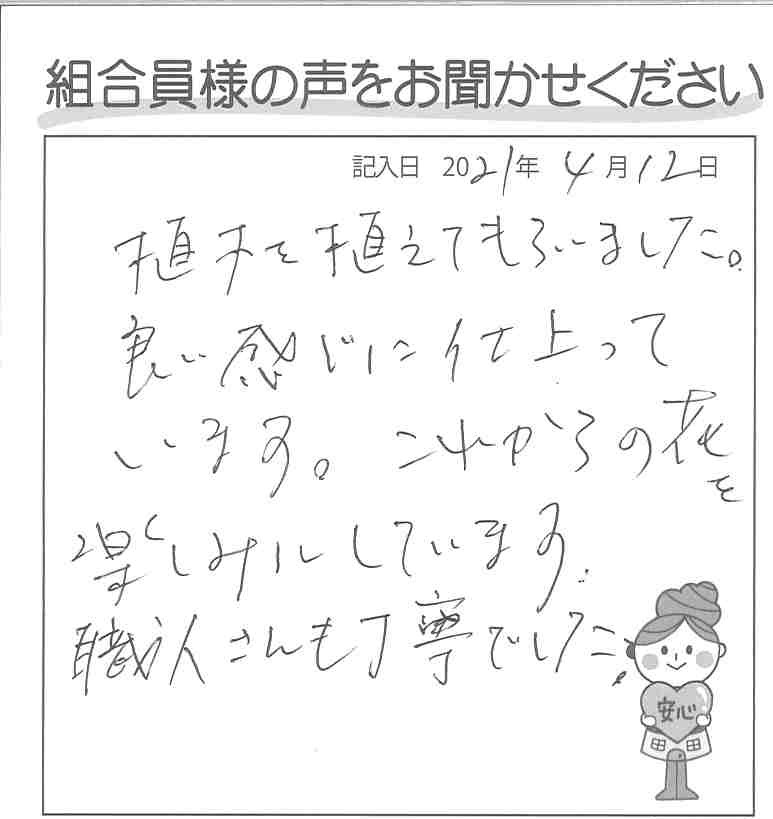 組合員様の声をお聞かせください
記入日 2021年 4月12日
植木を植えてもらいました。
良い感じに仕上って
います。これからの花を
楽しみにしています。
職人さんも丁寧でした。
安心